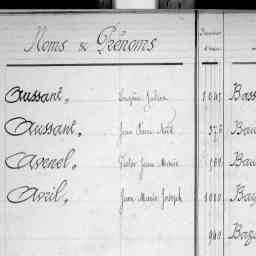 Noms & Prénoms
Aussant, Eugène Julien 1041 Bass
Aussant, Jean Pierre Noël 575 Bau
Avenel, Victor Jean Marie 509 Bau
Avril, Jean Marie Joseph 1080 Bay
940 Baz